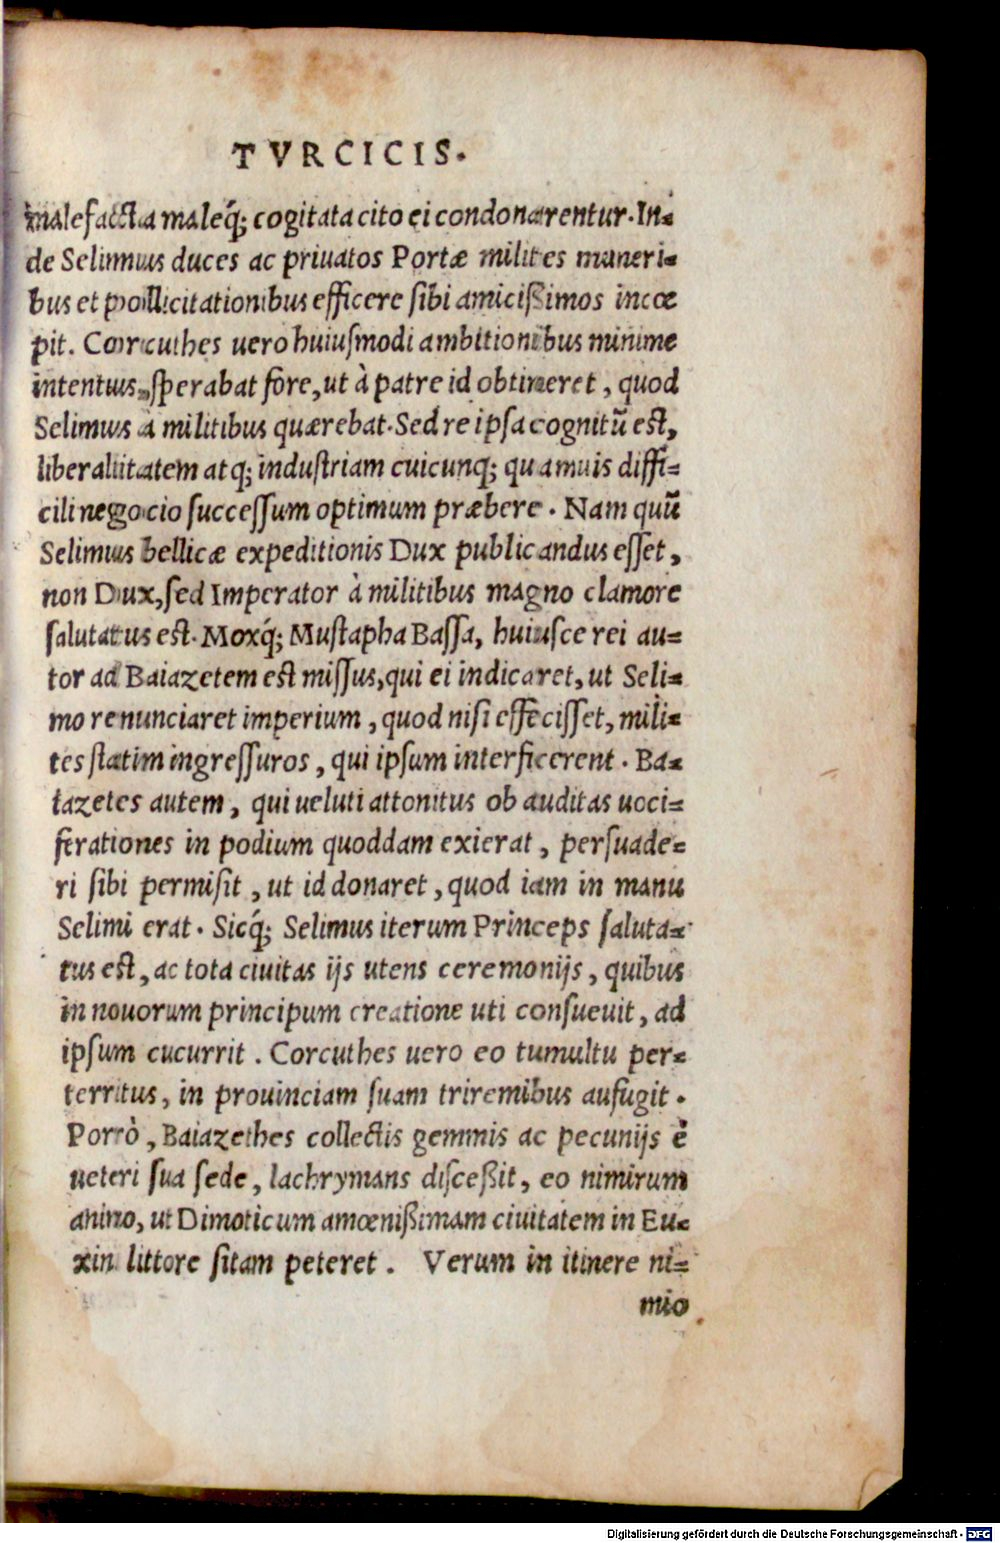 TVRCICIS.
malefacta maleq́; cogitata cito ei condonarentur. In=
de Selimus duces ac priuatos Portæ milites muneri=
bus et pollicitationibus efficere sibi amicißimos incœ
pit. Corcuthes uero huiusmodi ambitionibus minime
intentus, sperabat fore, ut à patre id obtineret, quod
Selimus à militibus quærebat. Sed re ipsa cognitū est,
liberalitatem atq; industriam cuicunq; quamuis diffi=
cili negocio successum optimum præbere. Nam quū
Selimus bellicæ expeditionis Dux publicandus esset,
non Dux, sed Imperator à militibus magno clamore
salutatus est. Moxq́; Mustapha Bassa, huiusce rei au=
tor ad Baiazetem est missus, qui ei indicaret, ut Seli=
mo renunciaret imperium, quod nisi effecisset, mili=
tes statim ingressuros, qui ipsum interficerent. Ba=
iazetes autem, qui ueluti attonitus ob auditas uoci=
ferationes in podium quoddam exierat, persuade=
ri sibi permisit, ut id donaret, quod iam in manu
Selimi erat. Sicq́; Selimus iterum Princeps saluta=
tus est, ac tota ciuitas ijs utens ceremonijs, quibus
in nouorum principum creatione uti consueuit, ad
ipsum cucurrit. Corcuthes uero eo tumultu per=
territus, in prouinciam suam triremibus aufugit.
Porrò, Baiazethes collectis gemmis ac pecunijs è
ueteri sua sede, lachrymans disceßit, eo nimirum
animo, ut Dimoticum amœnißimam ciuitatem in Eu=
xin littore sitam peteret. Verum in itinere ni=
mio
Digitalisierung gefördert durch die Deutsche Forschungsgemeinschaft - DFG